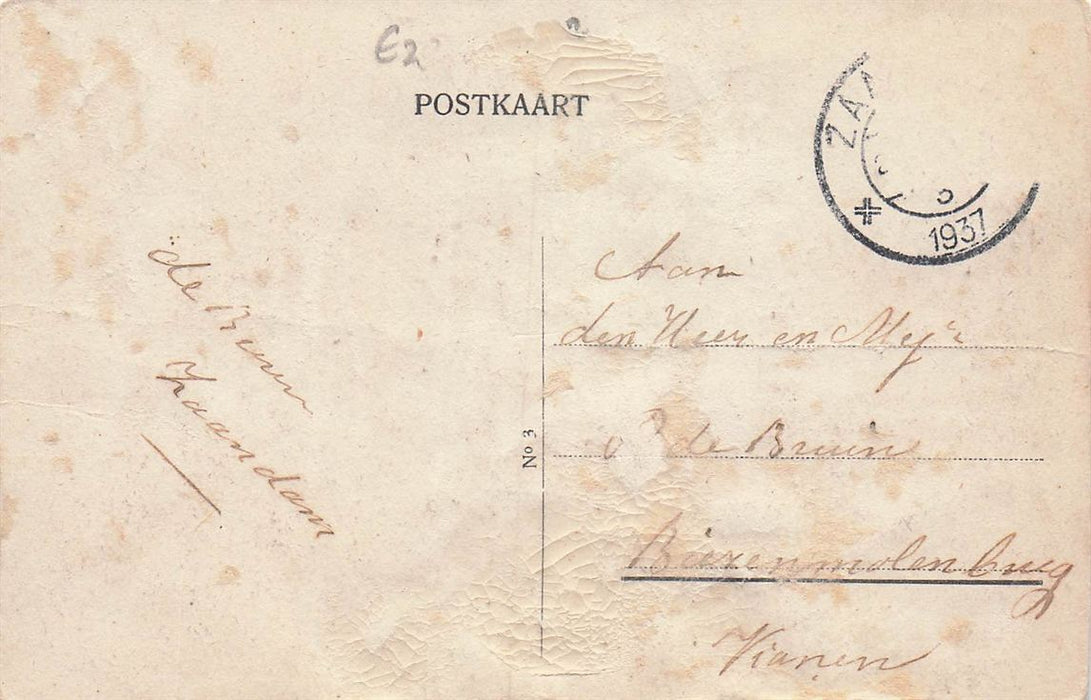 €2
POSTKAART
ZAA
1937
de Bruin
Zaandam
Aan
den Heer en Mej'r
de Bruin
No 3
Biezenmolenbrug
Vianen